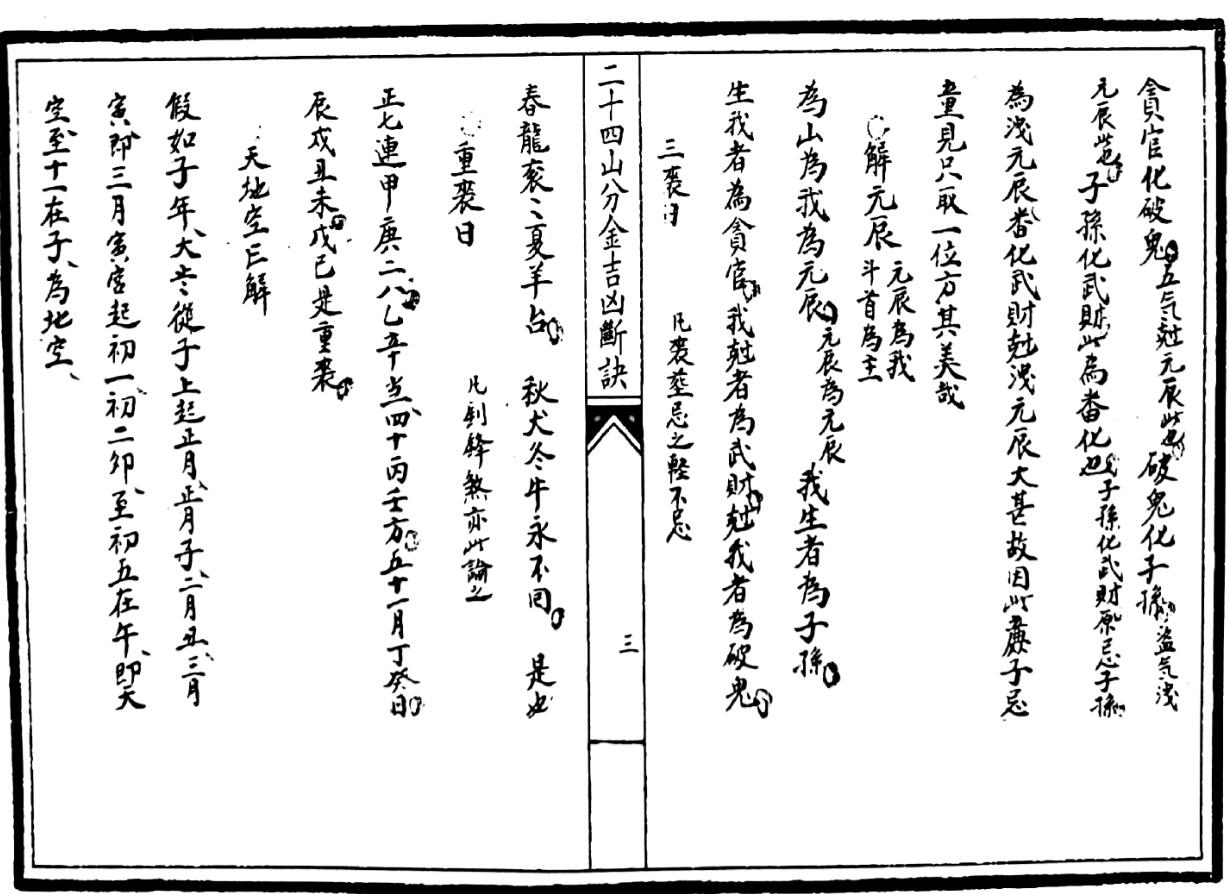 貪官化破鬼 五气尅元辰此也 破鬼化子孫 盜气洩
元辰此也 子孫化武財 此為畨化也 子孫化武財原忌子孫
為洩元辰畨化武財尅洩元辰大甚故因此廉子忌
重見只取一位方其美哉
解元辰 元辰為我 斗首為主
為山為我為元辰 元辰為元辰 我生者為子孫
生我者為貪官 我尅者為武財 尅我者為破鬼
三喪日 凡喪塟忌之輕不忌
二十四山分金吉凶斷訣
三
春龍喪〻夏羊台 秋犬冬牛永不囘 是也
重喪日 凡到鋒煞亦此論之
正七連甲庚二八乙辛当四十丙壬方五十一月丁癸日
辰戌丑未戊己是重喪
天地空亡解
假如子年、大〻從子上起正月、正月子、二月丑、三月
寅即三月寅宮起初一、初二卯、至初五在午、即天
空至十一在子、為地空、